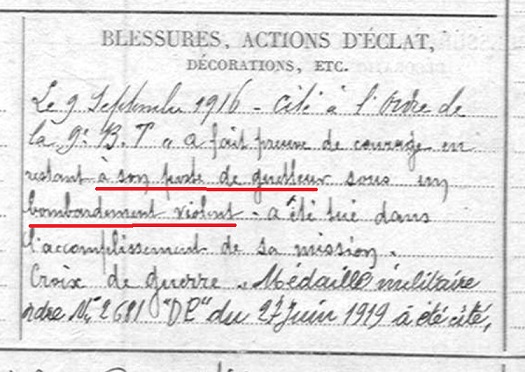 BLESSURES, ACTIONS D'ÉCLAT,
DÉCORATIONS, ETC.
Le 9 Septembre 1916 - Cité à l'Ordre de
la 9e B. I " a fait preuve de courage en
restant à son poste de guetteur sous un
bombardement violent - a été tué dans
l'accomplissement de sa mission.
Croix de guerre - Médaille militaire
ordre N° 2681 "DP" du 27 Juin 1919 a été cité,